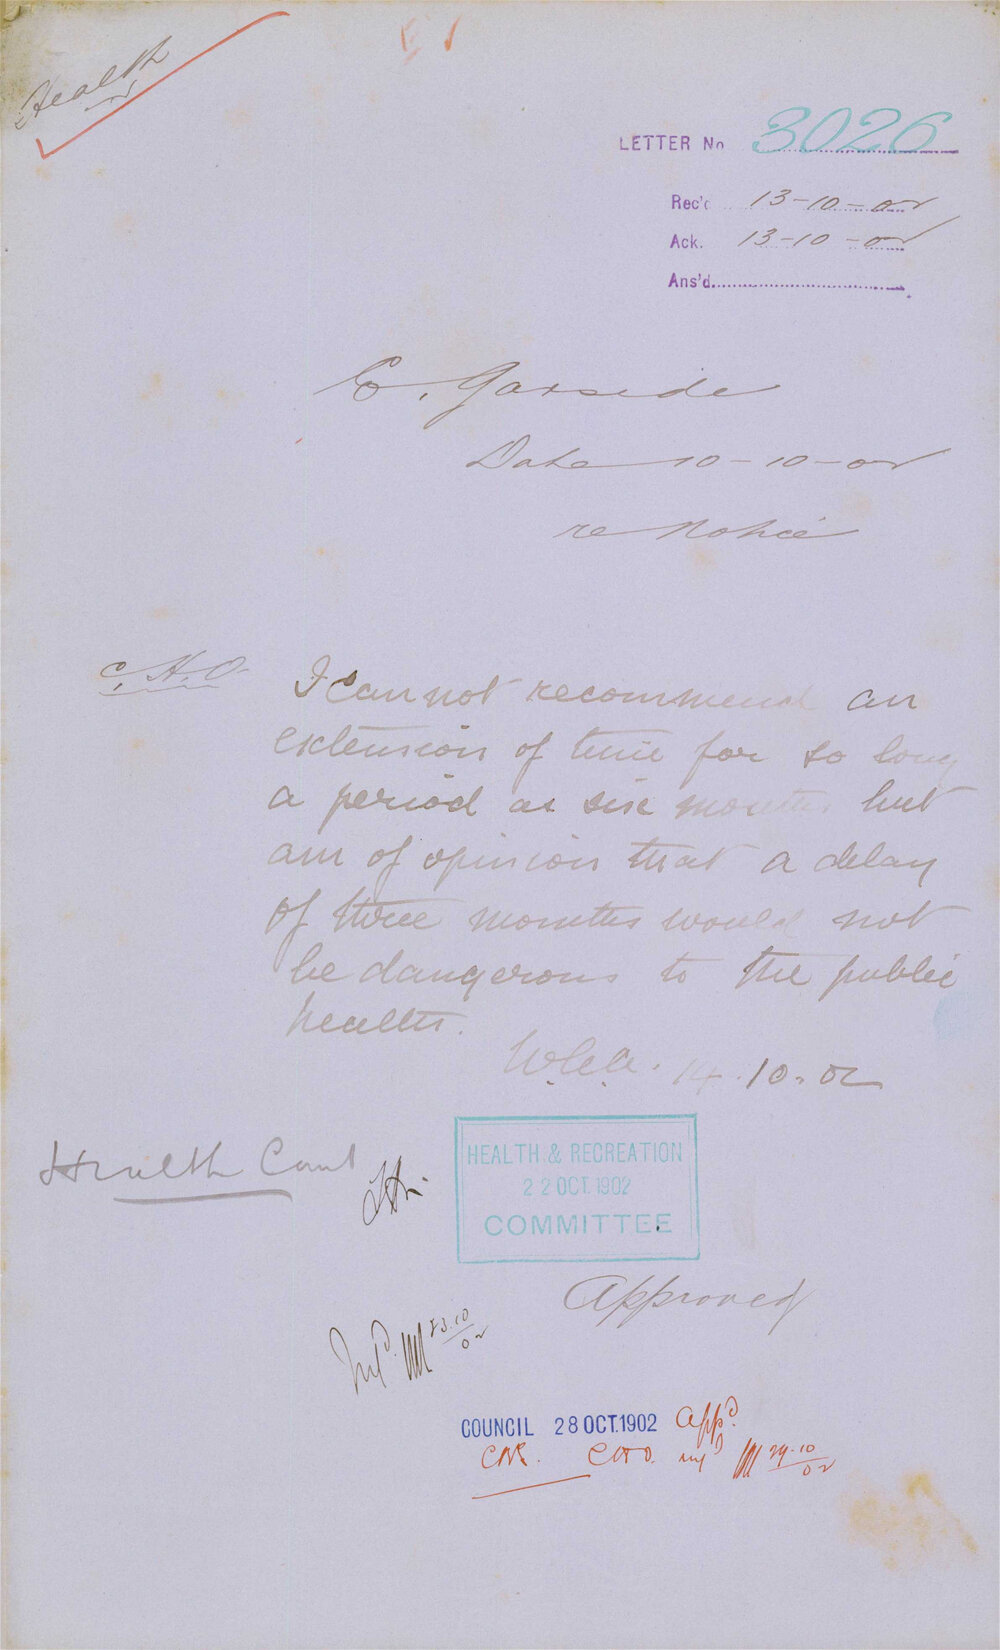 Health
LETTER No 3026
Rec'd 13-10-02
Ack. 13-10-02
Ans'd.
E. Garside
Date 10-10-02
re Notice
C.H.O. I cannot recommend an
extension of time for so long
a period as six months but
am of opinion that a delay
of three months would not
be dangerous to the public
health.
14.10.02
Health Comt
HEALTH & RECREATION
22 OCT. 1902
COMMITTEE
Approved
23.10/02
COUNCIL 28 OCT. 1902 App'd.
CHO. 29.10/02